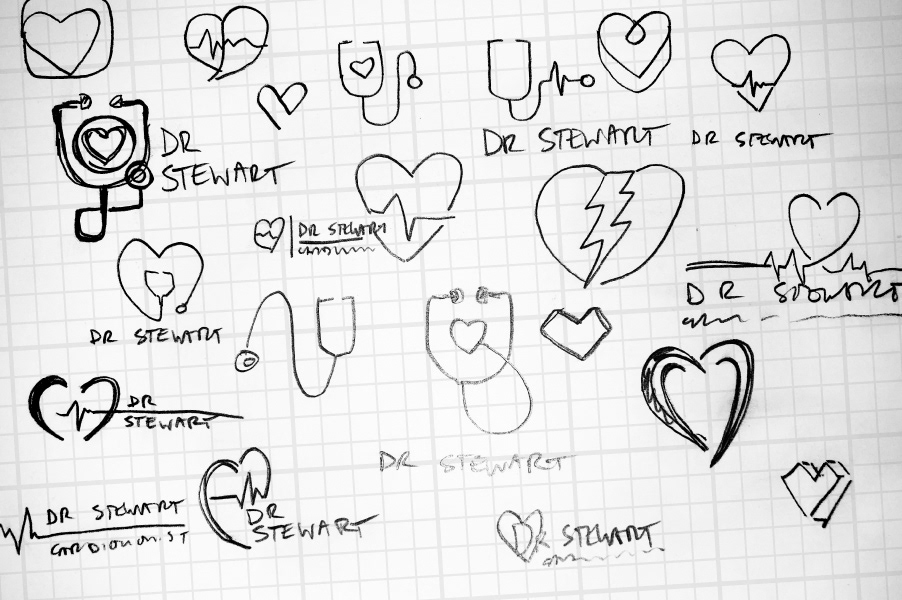 DR
STEWART
DR STEWART
DR STEWART
DR STEWART
DR STEWART
DR STEWART
DR
STEWART
DR STEWART
DR STEWART
DR
STEWART
DR STEWART